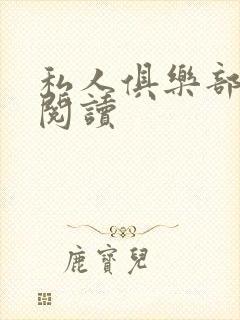 私人俱樂部
閱讀
鹿寶兒